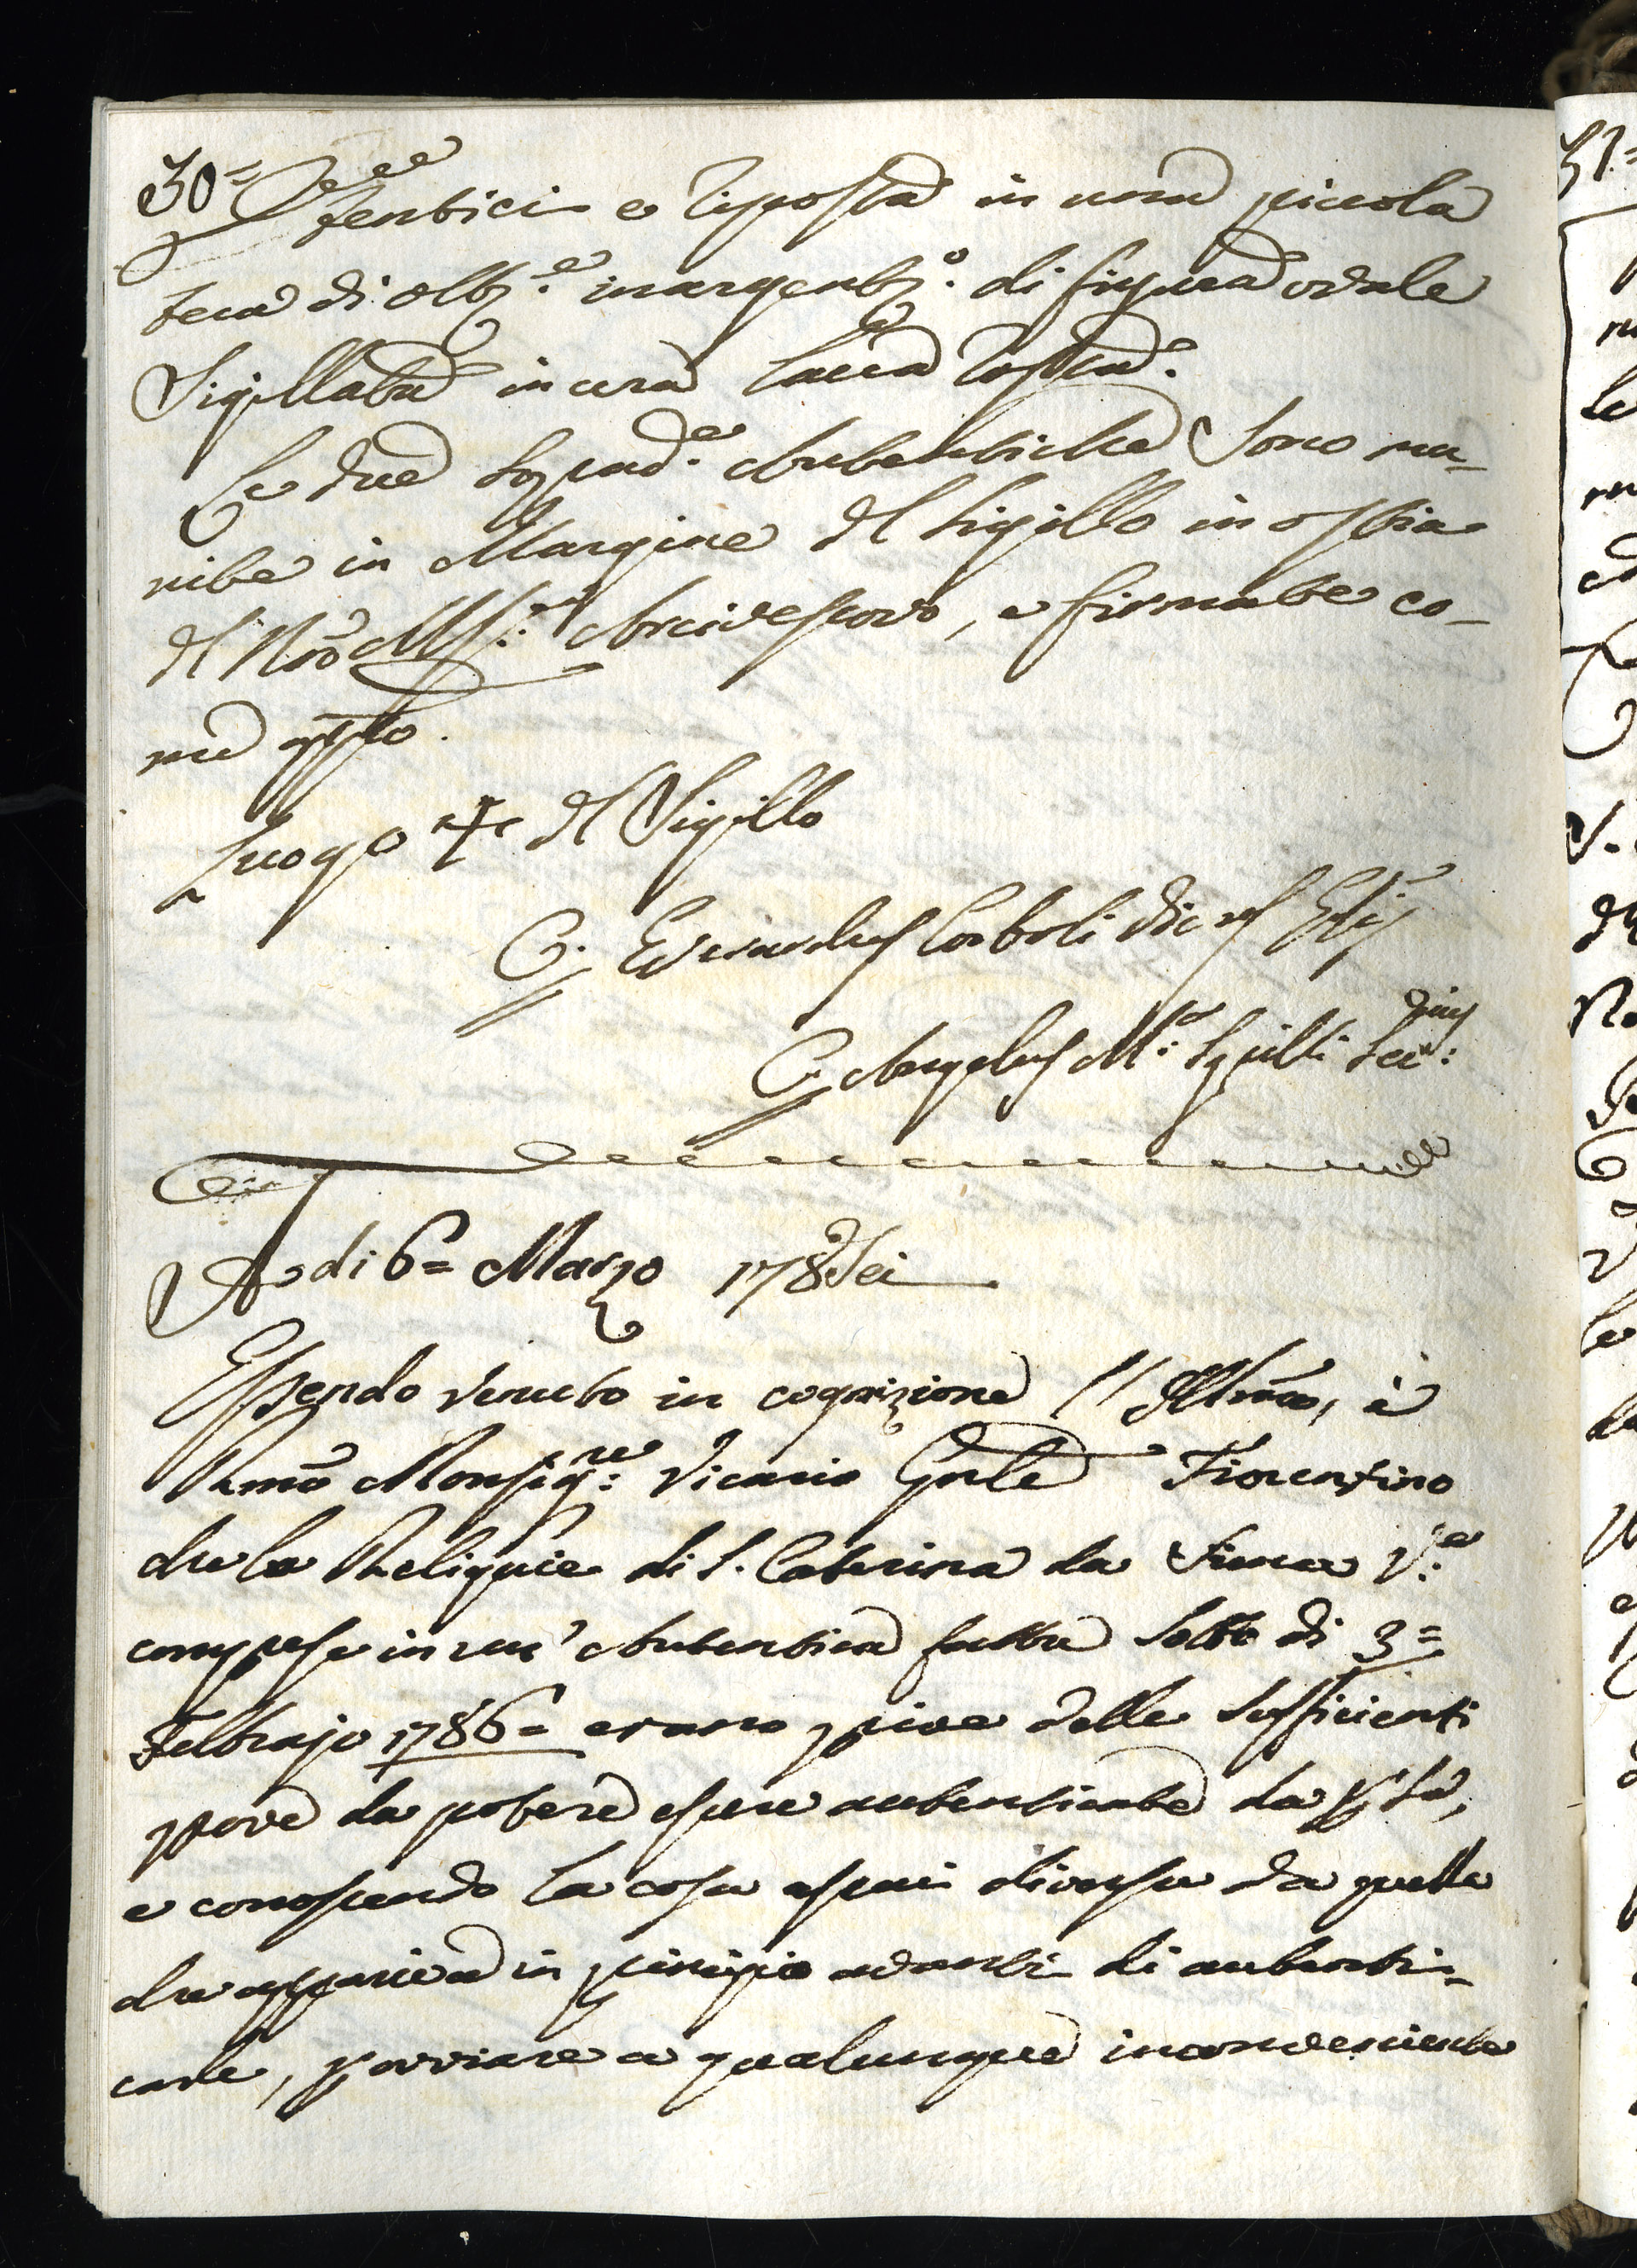 30=
tentici e riposta in una piccola
teca di ott:e inargent:o di figura ovale
Sigillata in cera lacca rossa.
Le due soprad:e Autentiche sono mu-
nite in Margine del Sigillo in ostia
del Nrõ Arcivescovo, e firmate co-
me app.o
Luogo + del Sigillo
C. Everardus Corboli Vic.us
C. Angelus M.a Squilli
A di 6= Marzo 178sei
Essendo venuto in cognizione l'Illmõ, e
Rmõ Monsig:re Vicario Gnle Fiorentino
che le Reliquie di S. Caterina da Siena V:e
comprese in un' Autentica fatta sotto di 3=
Febbrajo 1786= erano prive delle sufficienti
prove da potere essere autenticate da sè,
e conoscendo la cosa assai diversa da quella
che appariva in principio avanti di autenti-
carle, p ovviare a qualunque inconveniente